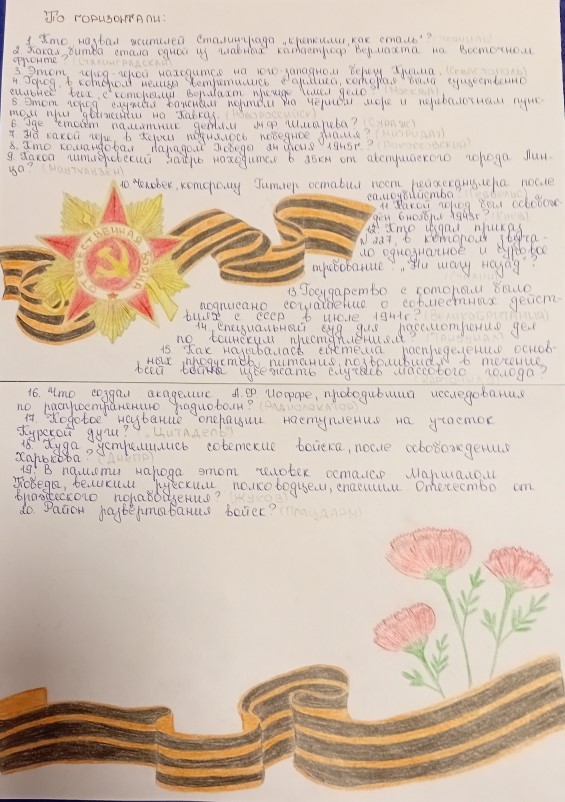 По горизонтали:
1. Кто назвал жителей Сталинграда „крепкими, как сталь"? (Черчилль)
2. Какая битва стала одной из главных катастроф вермахта на Восточном
фронте? (Сталинградская)
3. Этот город-герой находится на юго-западном берегу Крыма. (Севастополь)
4. Город, в котором немцы встретились с армией, которая была существенно
сильнее всех, с которыми вермахт прежде имел дело? (Москва)
5. Этот город служил важным портом на Чёрном море и перевалочным пунк-
том при движении на Кавказ. (Новороссийск)
6. Где стоит памятник детям М.Ф Шмырёва? (Сураж)
7. На какой горе, в Керчи поднялось победное знамя? (Митридат)
8. Кто командовал парадом Победы 24 июня 1945г? (Рокоссовский)
9. Какой гитлеровский лагерь находится в 25км от австрийского города Лин-
ца? (Маутхаузен)
10. Человек, которому Гитлер оставил пост рейхсканцлера после
самоубийства? (Геббельс)
11. Какой город был освобож-
дён 6 ноября 1943г? (Киев)
12. Кто издал приказ
№ 227, в котором звуча-
ло однозначное и суровое
требование: „Ни шагу назад"?
13. Государство с которым было
подписано соглашение о совместных дейст-
виях с СССР в июле 1941г? (Великобритания)
14. Специальный суд для рассмотрения дел
по воинским преступлениям? (Трибунал)
15. Как называлась система распределения основ-
ных продуктов питания, позволившая в течение
всей войны избежать случаев массового голода?
16. Что создал академик А.Ф Иоффе, проводивший исследования
по распространению радиоволн? (Радиолокатор)
17. Кодовое название операции наступления на участок
Курской дуги? (Цитадель)
18. Куда устремились советские войска, после освобождения
Харькова? (Днепр)
19. В памяти народа этот человек остался Маршалом
Победа, великим русским полководцем, спасшим Отечество от
вражеского порабощения? (Жуков)
20. Район развёртывания войск? (Плацдарм)
Отечественная война